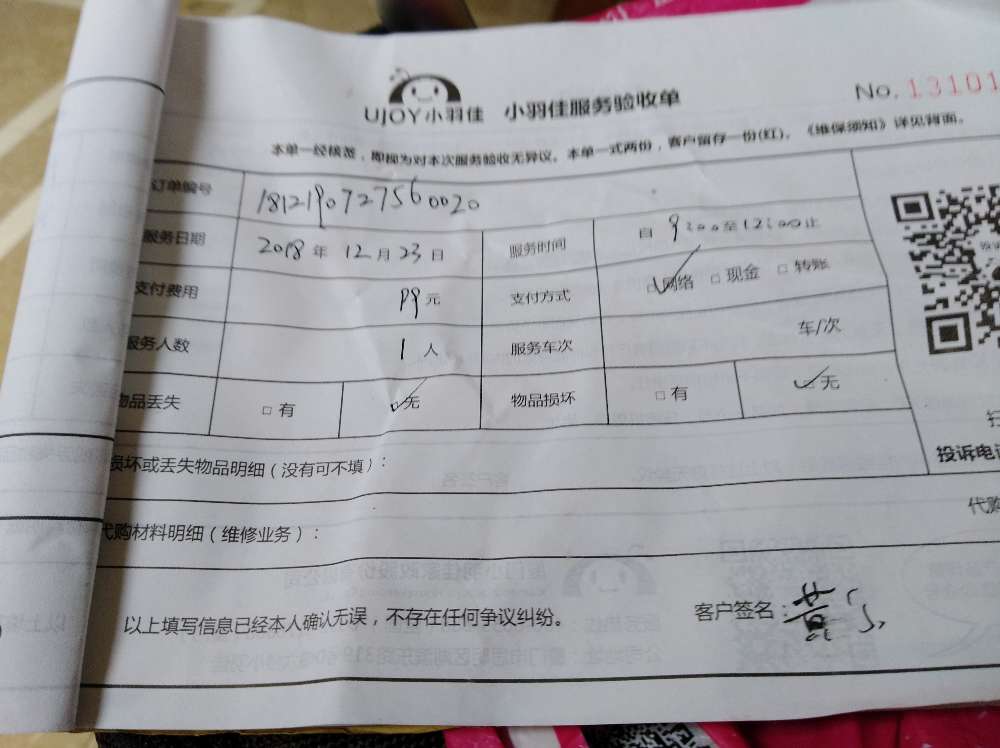 UJOY小羽佳 小羽佳服务验收单 No. 13101
本单一经核签，即视为对本次服务验收无异议。本单一式两份，客户留存一份(红)，《维保须知》详见背面。
订单编号 181219072756 0020
服务日期 2018 年 12 月 23 日 服务时间 自 9:00 至 12:00 止
支付费用 99 元 支付方式 网络 现金 转账
服务人数 1 人 服务车次 车/次
物品丢失 有 无 物品损坏 有 无
投诉电话
损坏或丢失物品明细（没有可不填）：
代购
代购材料明细（维修业务）：
以上填写信息已经本人确认无误，不存在任何争议纠纷。 客户签名：黄